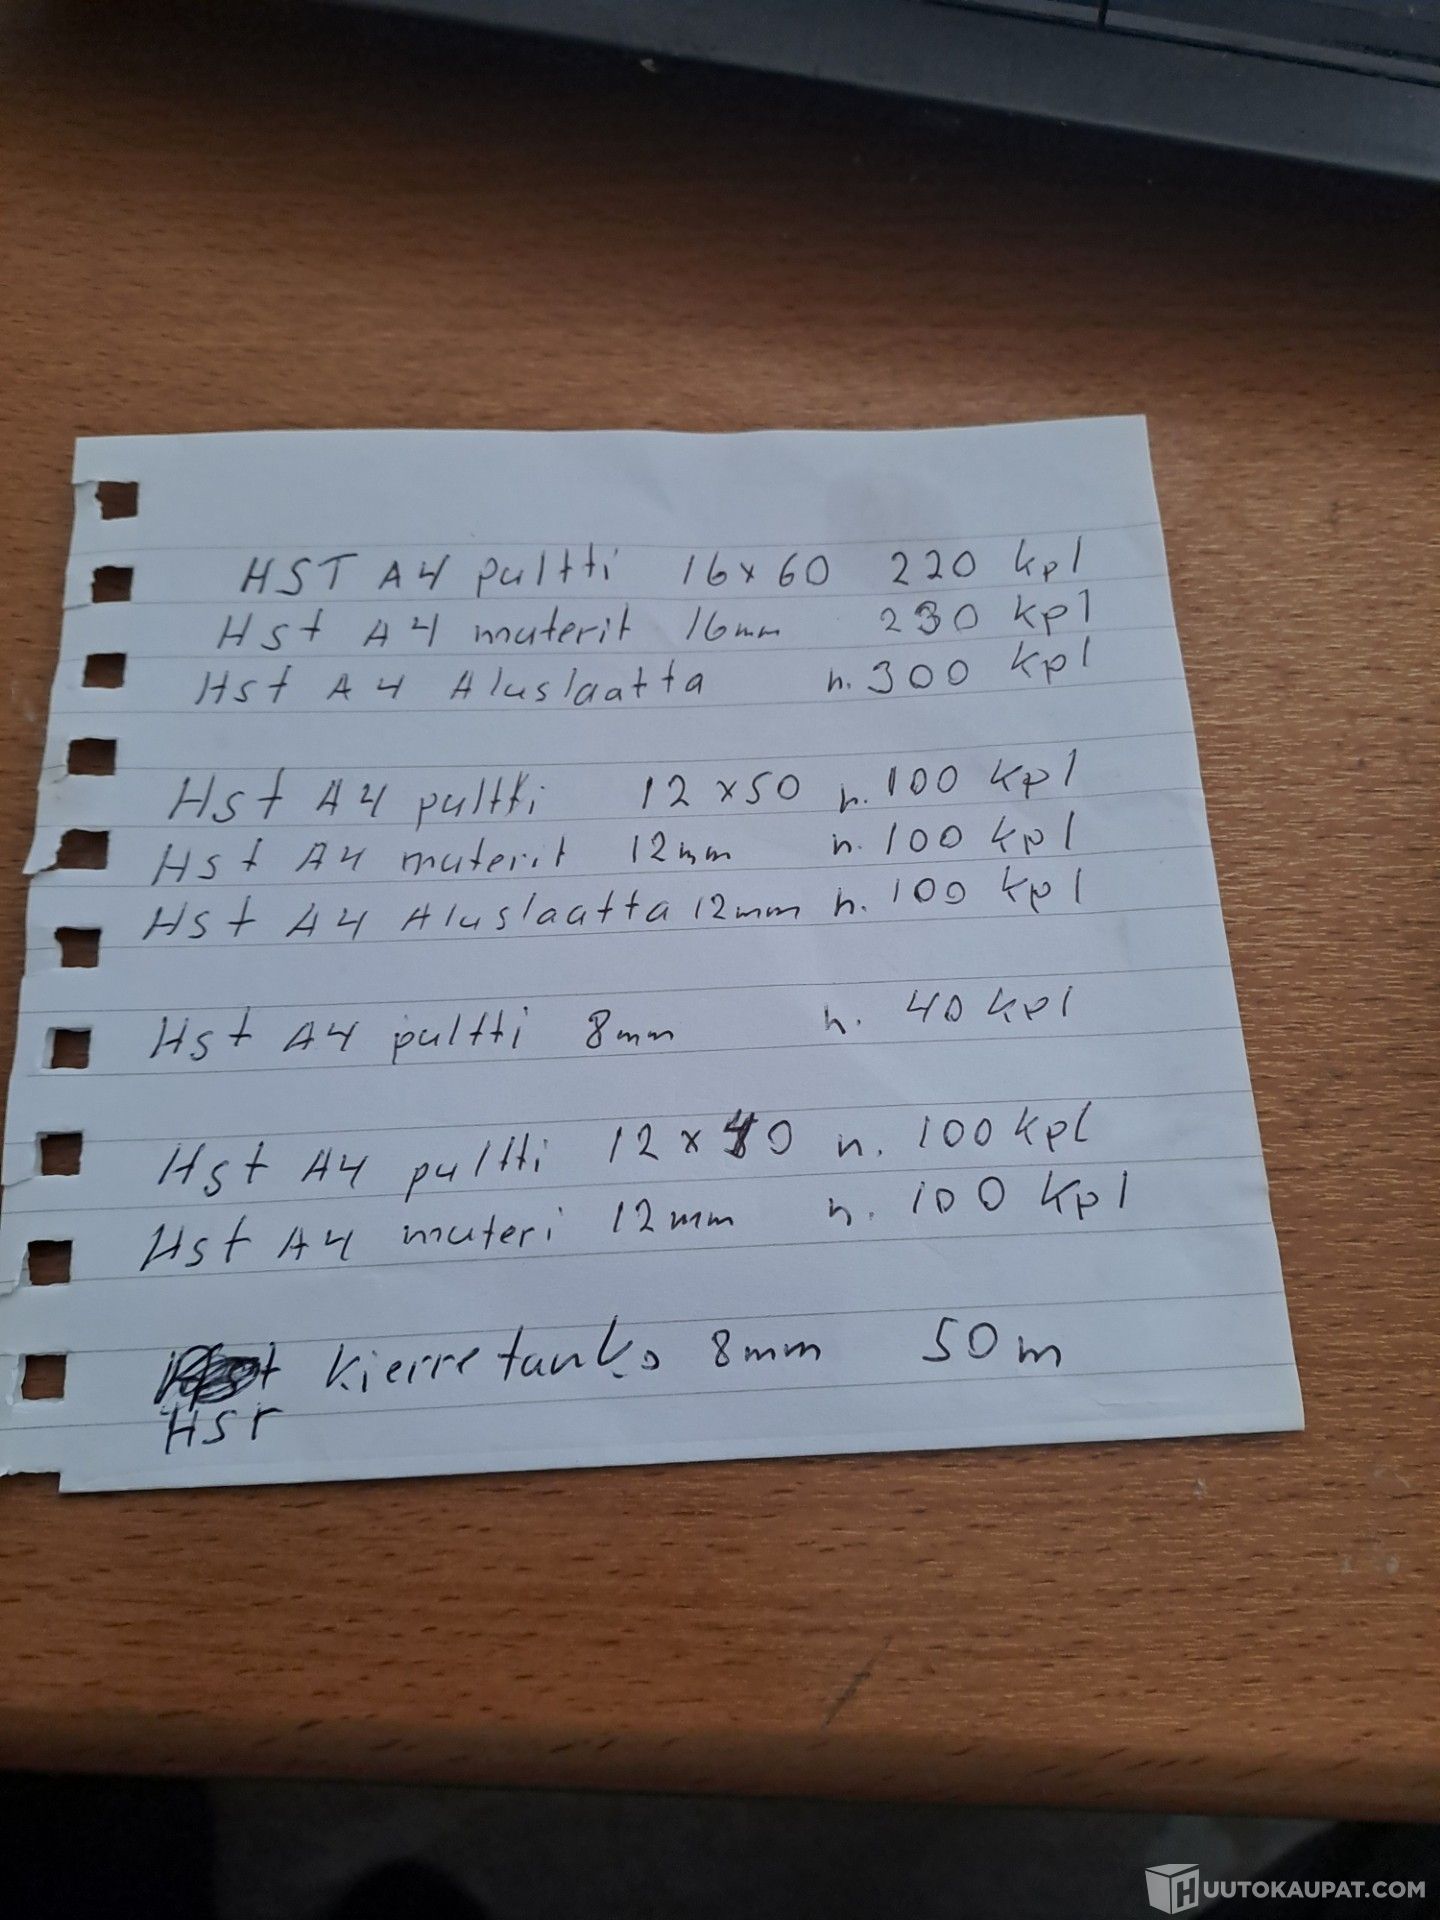 HST A4 pultti 16x60 220 kpl
Hst A4 muterit 16mm 230 kpl
Hst A4 Aluslaatta n. 300 kpl
Hst A4 pultti 12x50 n. 100 kpl
Hst A4 muterit 12mm n. 100 kpl
Hst A4 Aluslaatta 12mm n. 100 kpl
Hst A4 pultti 8mm n. 40 kpl
Hst A4 pultti 12x40 n. 100 kpl
Hst A4 muteri 12mm n. 100 kpl
Kierretanko 8mm 50m
HST
HUUTOKAUPAT.COM